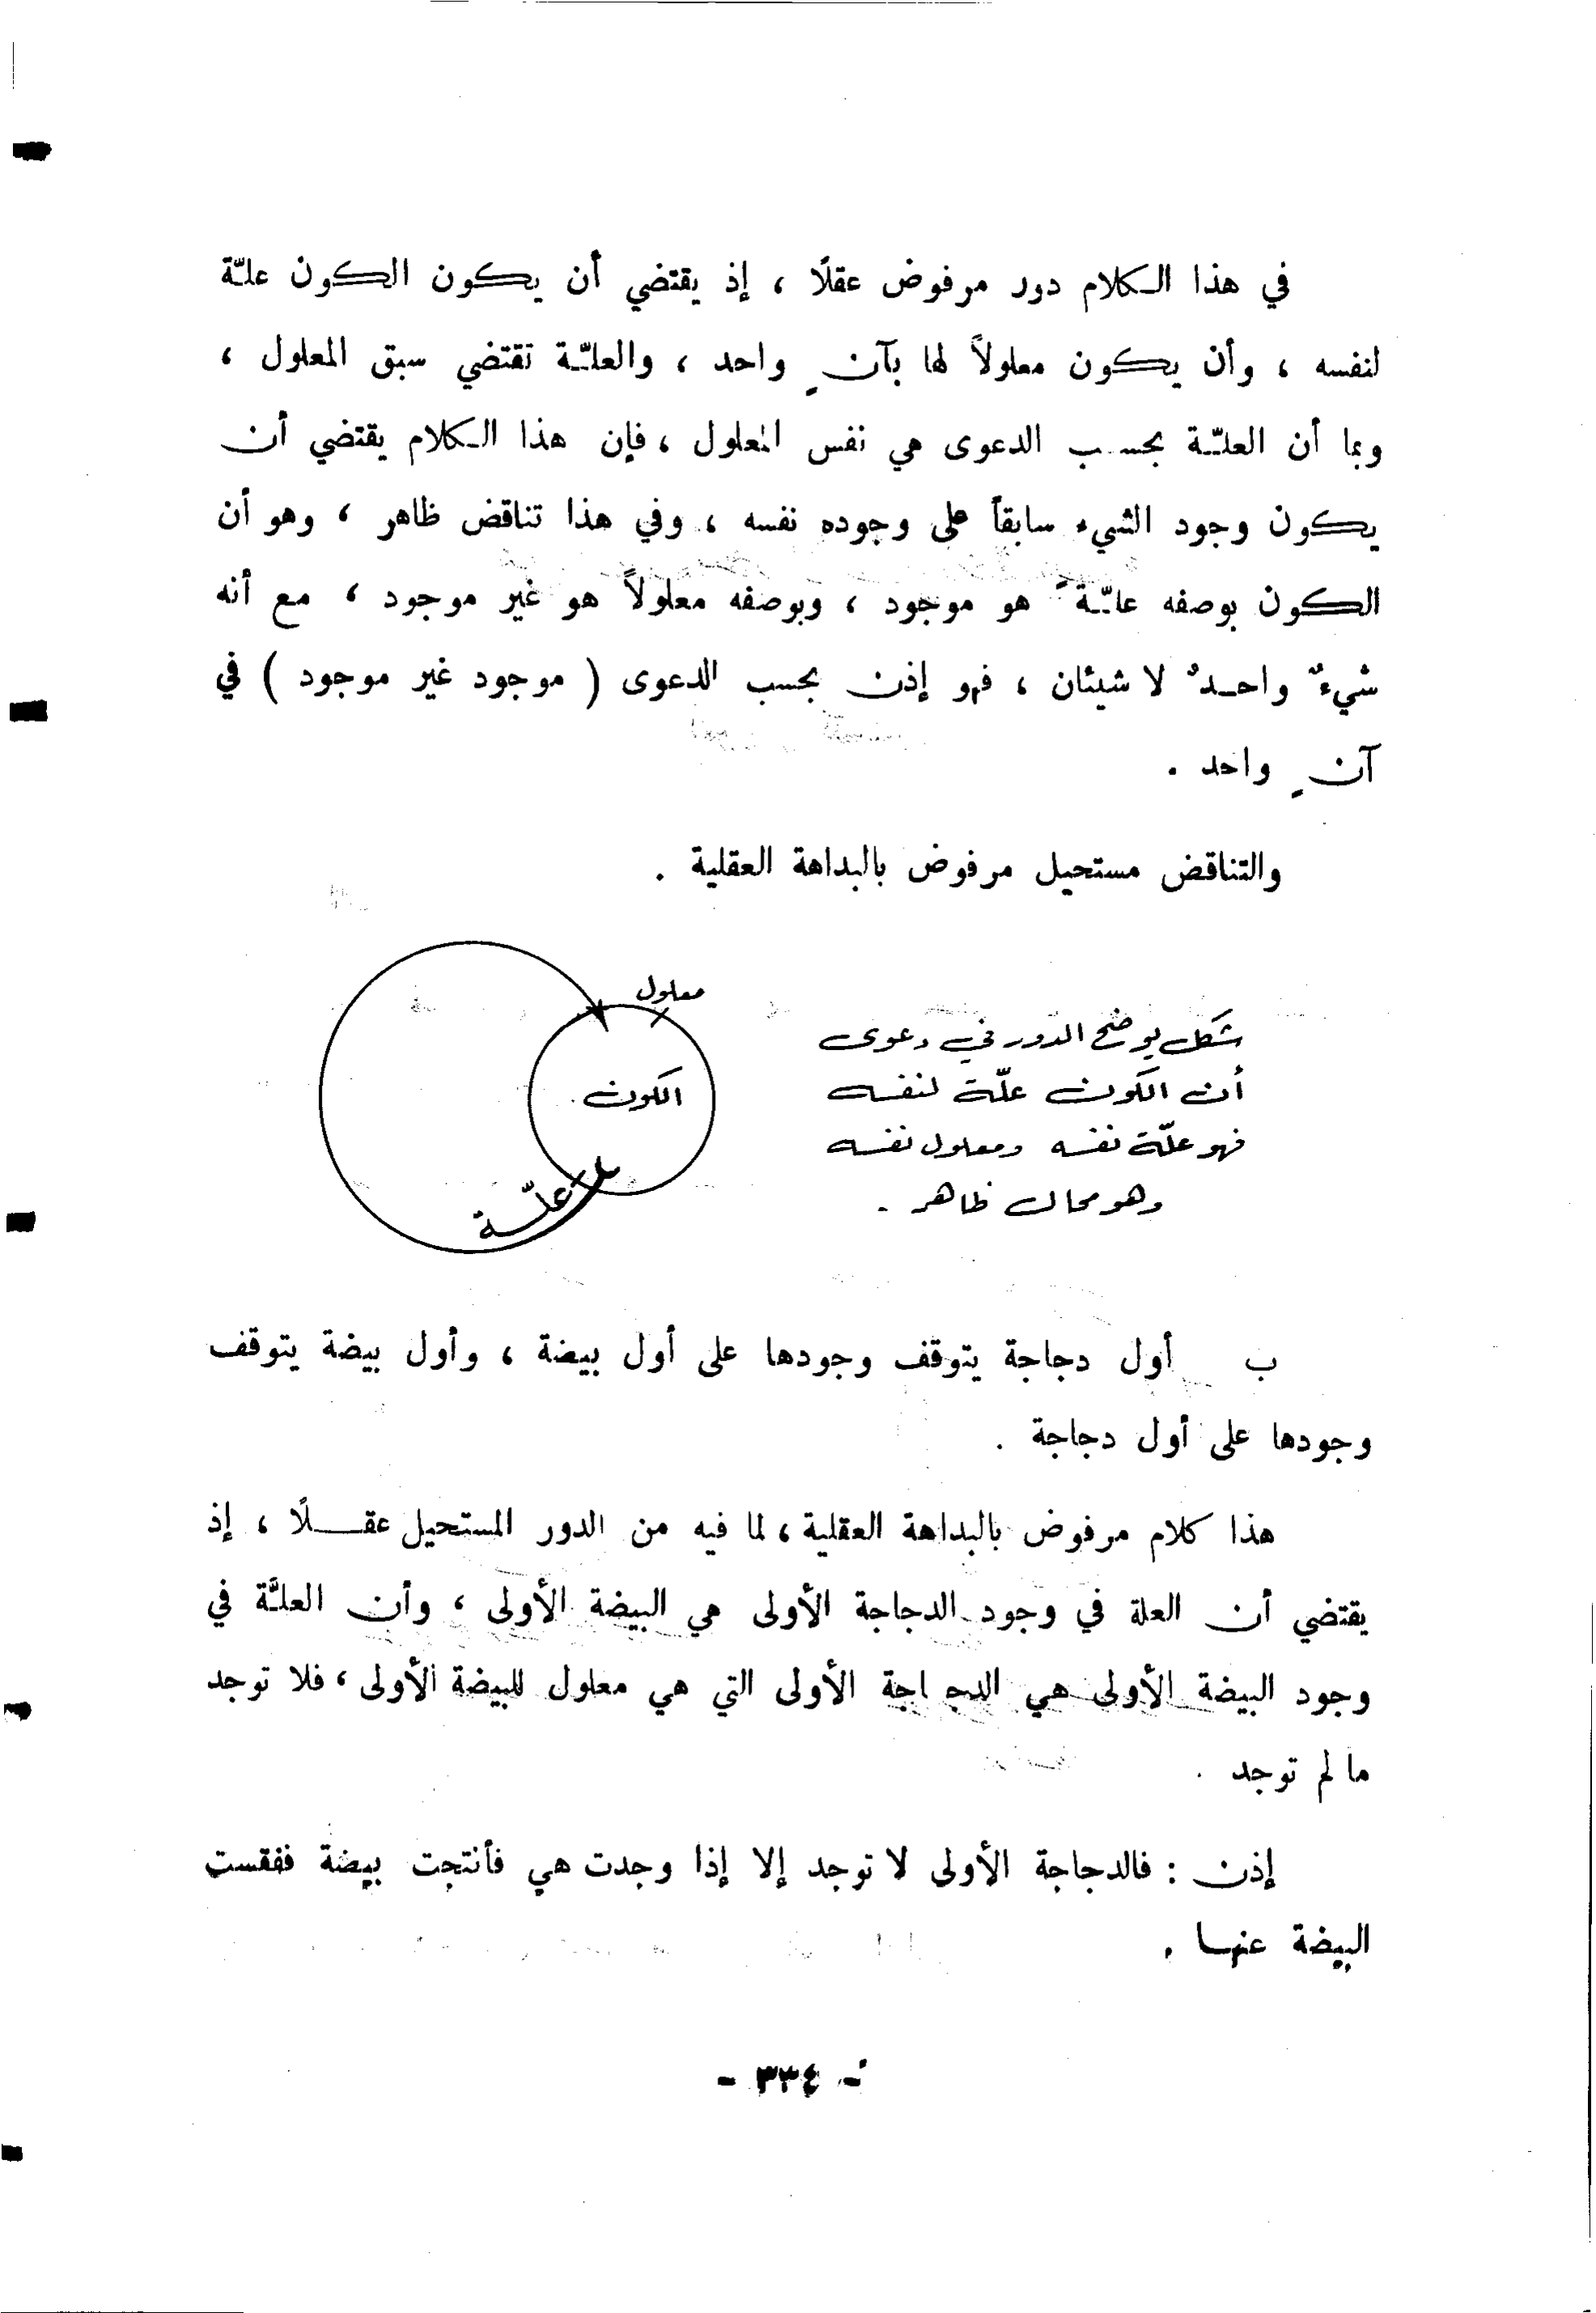 في هذا الكلام دور مرفوض عقلًا ، إذ يقتضي أن يكون الكون علّة
لنفسه ، وأن يكون معلولاً لها بآنٍ واحد ، والعلّة تقتضي سبق المعلول ،
وبما أن العلّة بحسب الدعوى هي نفس المعلول ، فإن هذا الكلام يقتضي أن
يكون وجود الشيء سابقاً على وجوده نفسه ، وفي هذا تناقض ظاهر ، وهو أن
الكون بوصفه علّةً هو موجود ، وبوصفه معلولاً هو غير موجود ، مع أنه
شيءٌ واحدٌ لا شيئان ، فهو إذن بحسب الدعوى ( موجود غير موجود ) في
آنٍ واحد .
والتناقض مستحيل مرفوض بالبداهة العقلية .
شكل يوضح الدور في دعوى
أن الكون علّة لنفسه
فهو علّة نفسه ومعلول نفسه
وهو محال ظاهر .
معلول
الكون
علّة
ب أول دجاجة يتوقف وجودها على أول بيضة ، وأول بيضة يتوقف
وجودها على أول دجاجة .
هذا كلام مرفوض بالبداهة العقلية ، لما فيه من الدور المستحيل عقلًا ، إذ
يقتضي أن العلة في وجود الدجاجة الأولى هي البيضة الأولى ، وأن العلَّة في
وجود البيضة الأولى هي الدجاجة الأولى التي هي معلول للبيضة الأولى ، فلا توجد
ما لم توجد .
إذن : فالدجاجة الأولى لا توجد إلا إذا وجدت هي فأنتجت بيضة ففقست
البيضة عنها .
- ٣٣٤ -